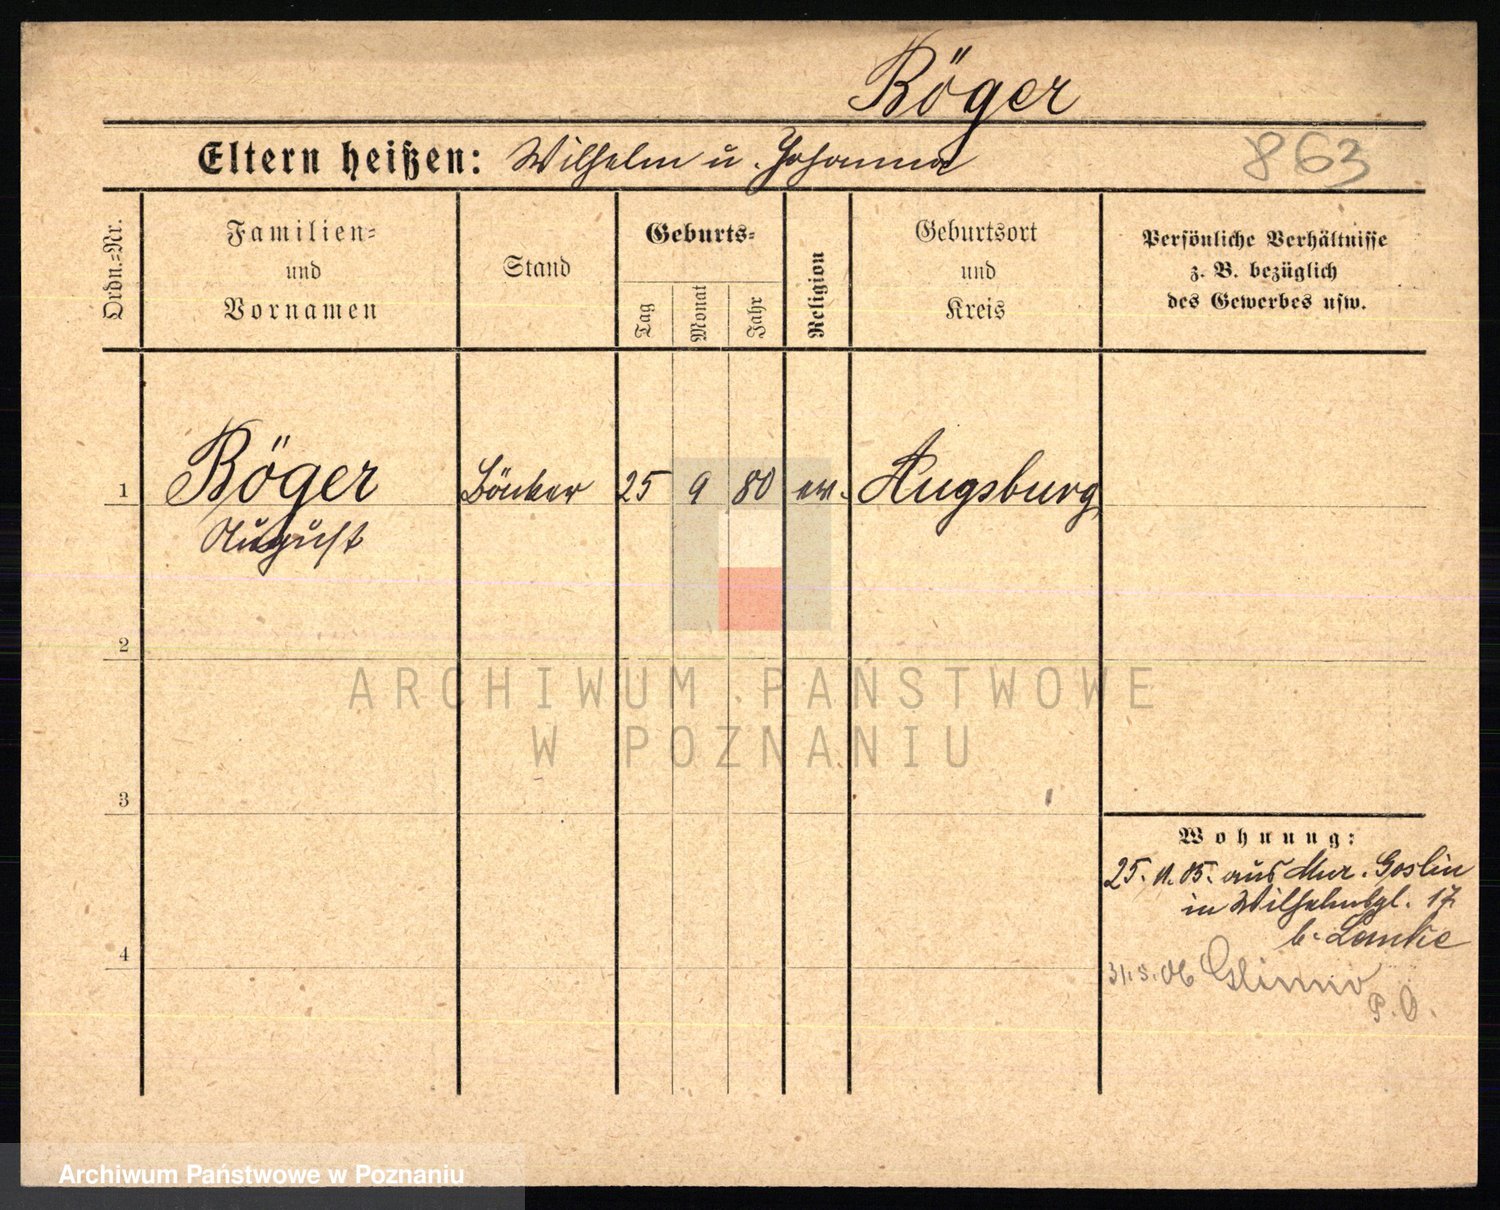 Böger
Eltern heißen: Wilhelm u. Johanna
863
Ordn.-Nr.
Familien-
und
Vornamen
Stand
Geburts-
Tag
Monat
Jahr
Religion
Geburtsort
und
Kreis
Persönliche Verhältnisse
z. B. bezüglich
des Gewerbes usw.
1 Böger Bäcker 25 9 80 ev. Augsburg
August
2
ARCHIWUM PAŃSTWOWE
W POZNANIU
3
Wohnung:
25. 11. 05. aus Mur. Goslin
in Wilhelmspl. 17
b. Lemke
4
31.5.06 Glinno
P. O.
Archiwum Państwowe w Poznaniu